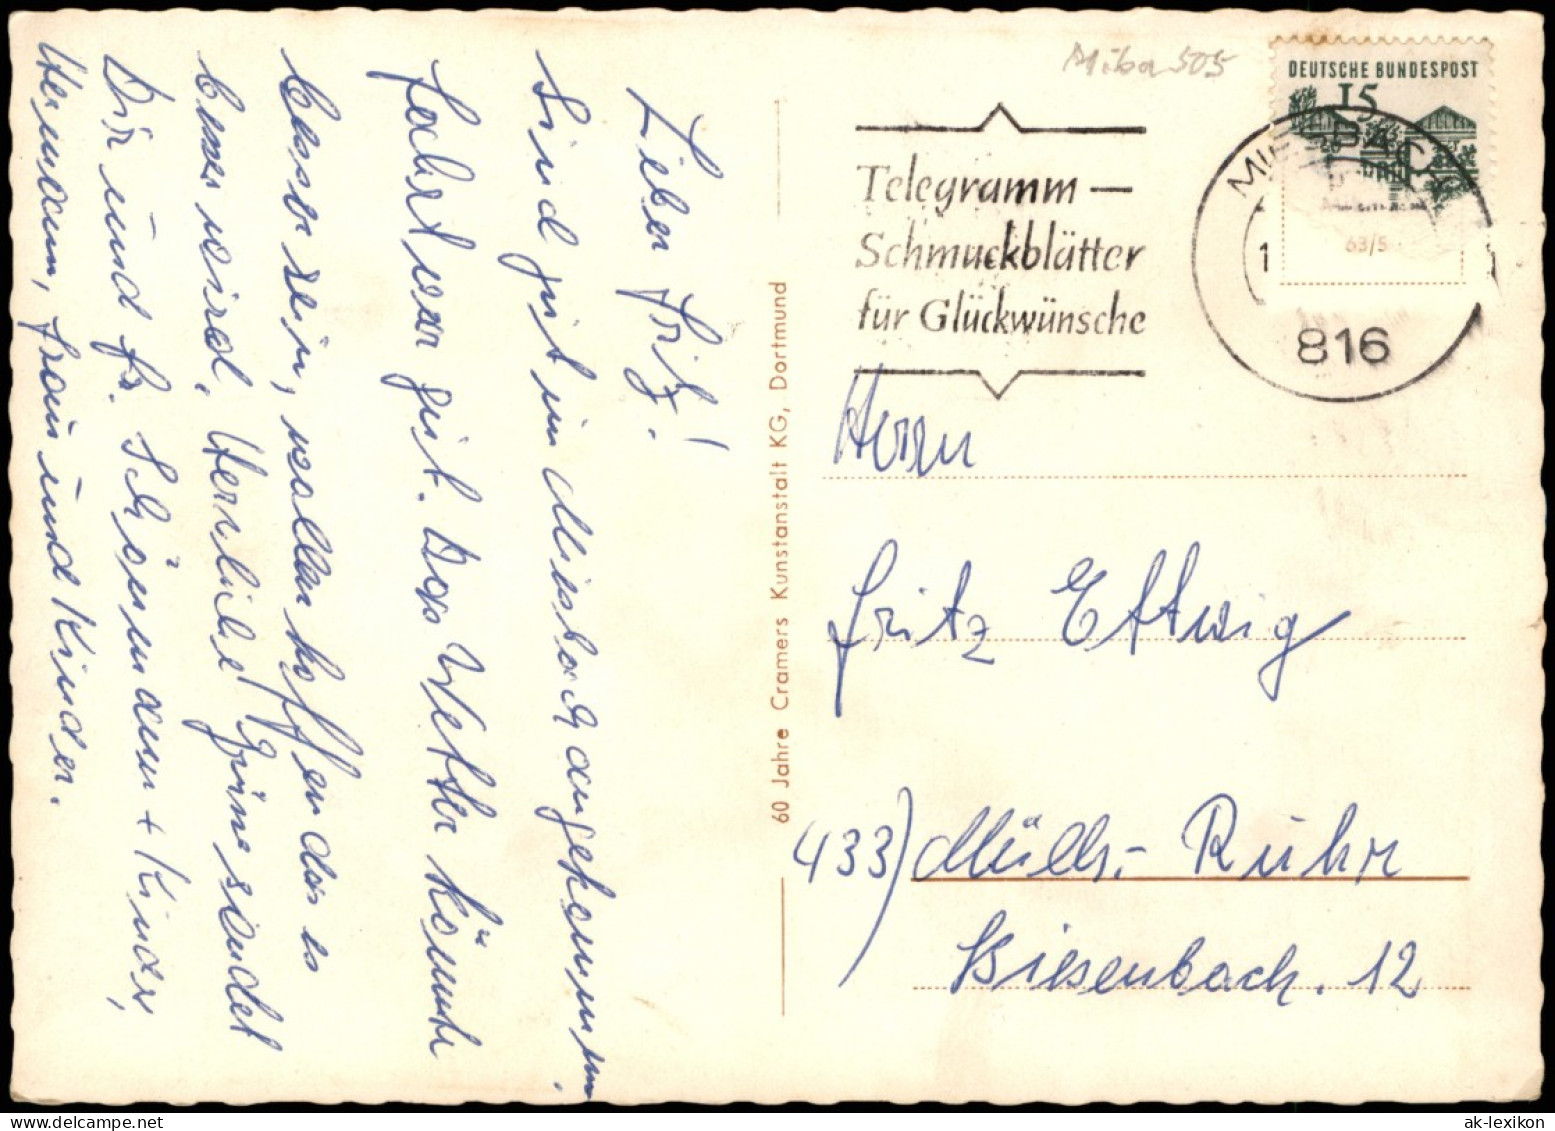 Lieber Fritz!
Sind gut in Miesbach angekommen.
Fahrt war gut. Das Wetter könnte
besser sein, wollen hoffen das es
besser wird. Herrliche Grüße sendet
Dir und Fr. Schönemann + Kinder,
Hermann, Frau und Kinder.
60 Jahre Cramers Kunstanstalt KG, Dortmund
Miba 505
Telegramm –
Schmuckblätter
für Glückwünsche
DEUTSCHE BUNDESPOST
15
63/5
1
816
Herrn
Fritz Ettwig
433) Mülh.- Ruhr
Biesenbach. 12
ak-lexikon